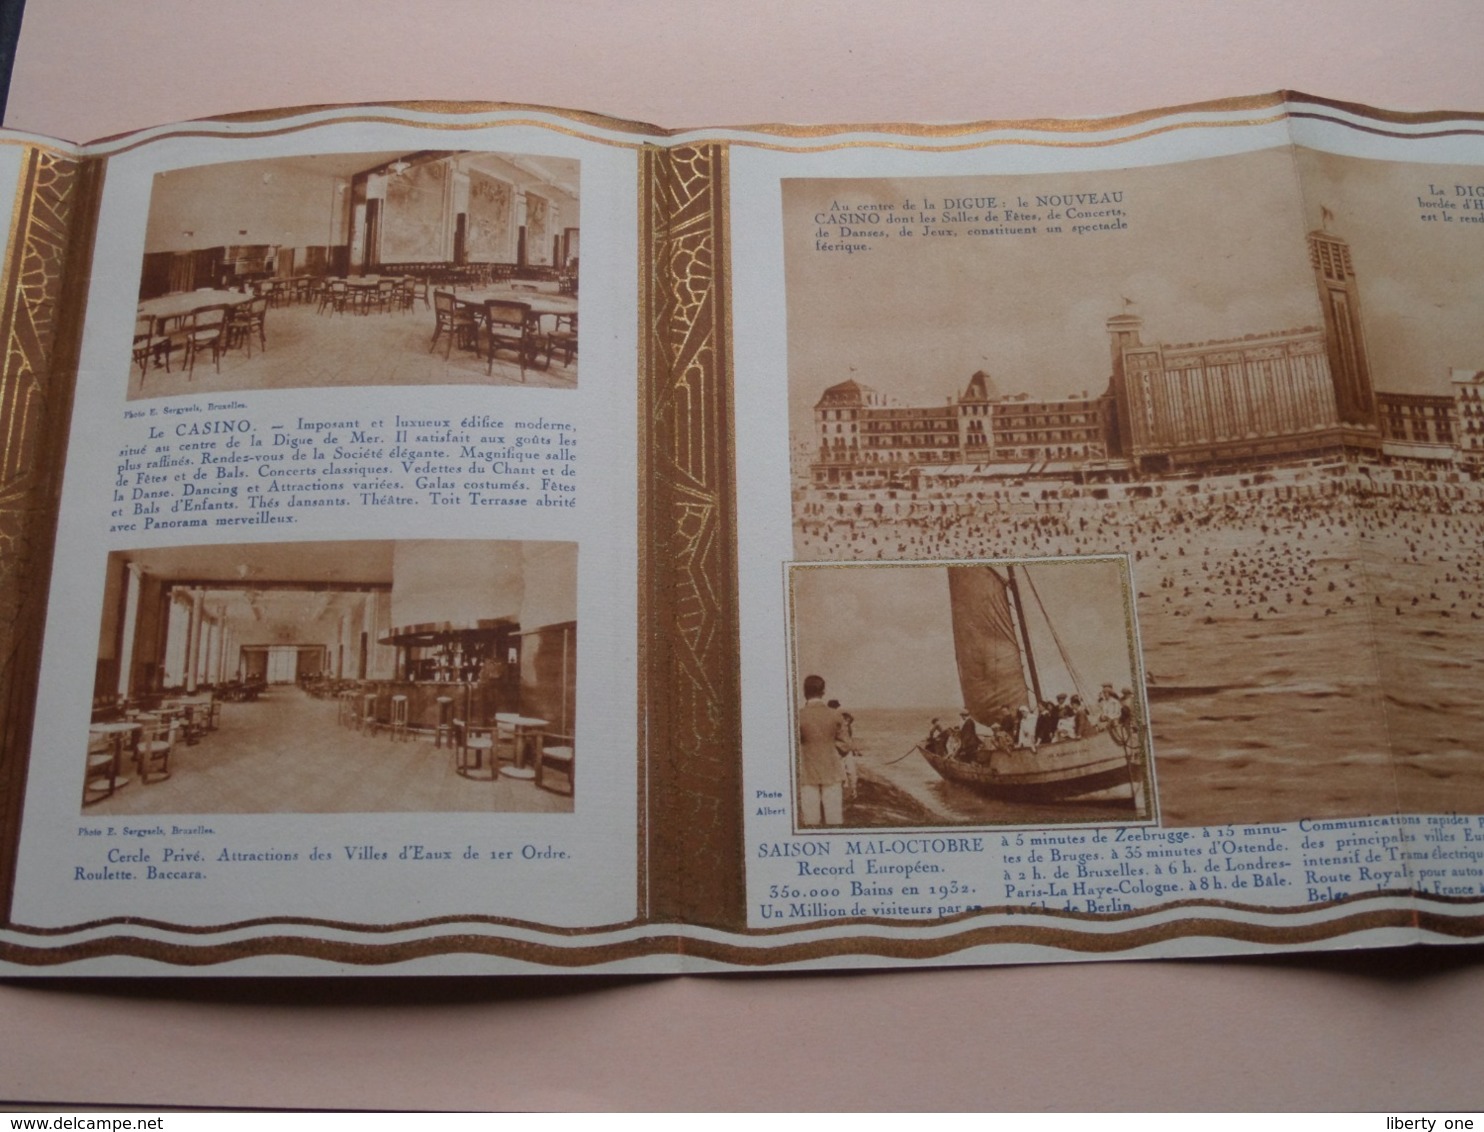 Photo E. Sergysels, Bruxelles.
Le CASINO. — Imposant et luxueux édifice moderne,
situé au centre de la Digue de Mer. Il satisfait aux goûts les
plus raffinés. Rendez-vous de la Société élégante. Magnifique salle
de Fêtes et de Bals. Concerts classiques. Vedettes du Chant et de
la Danse. Dancing et Attractions variées. Galas costumés. Fêtes
et Bals d'Enfants. Thés dansants. Théâtre. Toit Terrasse abrité
avec Panorama merveilleux.
Photo E. Sergysels, Bruxelles.
Cercle Privé. Attractions des Villes d'Eaux de 1er Ordre.
Roulette. Baccara.
Au centre de la DIGUE : le NOUVEAU
CASINO dont les Salles de Fêtes, de Concerts,
de Danses, de Jeux, constituent un spectacle
féerique.
La DIG
bordée d'H
est le rend
Photo
Albert
SAISON MAI-OCTOBRE
Record Européen.
350.000 Bains en 1932.
Un Million de visiteurs par an
à 5 minutes de Zeebrugge. à 15 minu-
tes de Bruges. à 35 minutes d'Ostende.
à 2 h. de Bruxelles. à 6 h. de Londres-
Paris-La Haye-Cologne. à 8 h. de Bâle.
h. de Berlin.
Communications rapides p
des principales villes Eu
intensif de Trams électriqu
Route Royale pour autos
Belge la France
liberty one